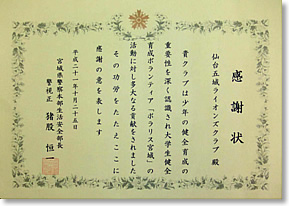 感謝状
仙台五城ライオンズクラブ 殿
貴クラブは少年の健全育成の
重要性を深く認識され大学生健全
育成ボランティア「ポラリス宮城」の
活動に対し多大なる貢献をされました
その功労をたたえここに
感謝の意を表します
平成二十一年十月二十五日
宮城県警察本部生活安全部長
警視正 猪股 恒一